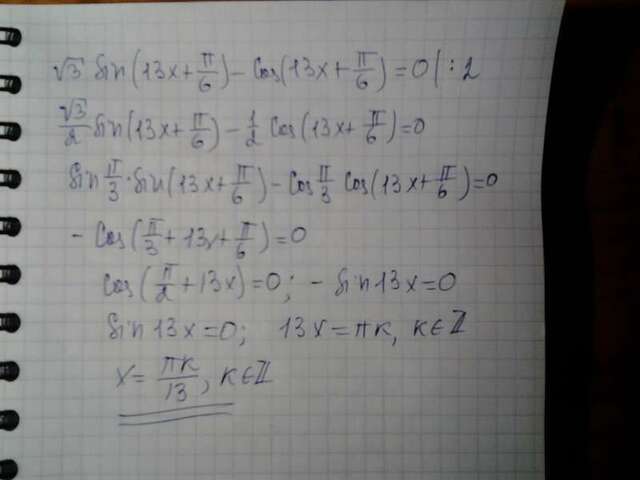 √3 sin(13x+π/6)−cos(13x+π/6)=0|:2
√3/2 sin(13x+π/6)−1/2 cos(13x+π/6)=0
sin π/3·sin(13x+π/6)−cos π/3 cos(13x+π/6)=0
−cos(π/3+13x+π/6)=0
cos(π/2+13x)=0; −sin13x=0
sin13x=0; 13x=πк, к∈ℤ
x=πк/13, к∈ℤ